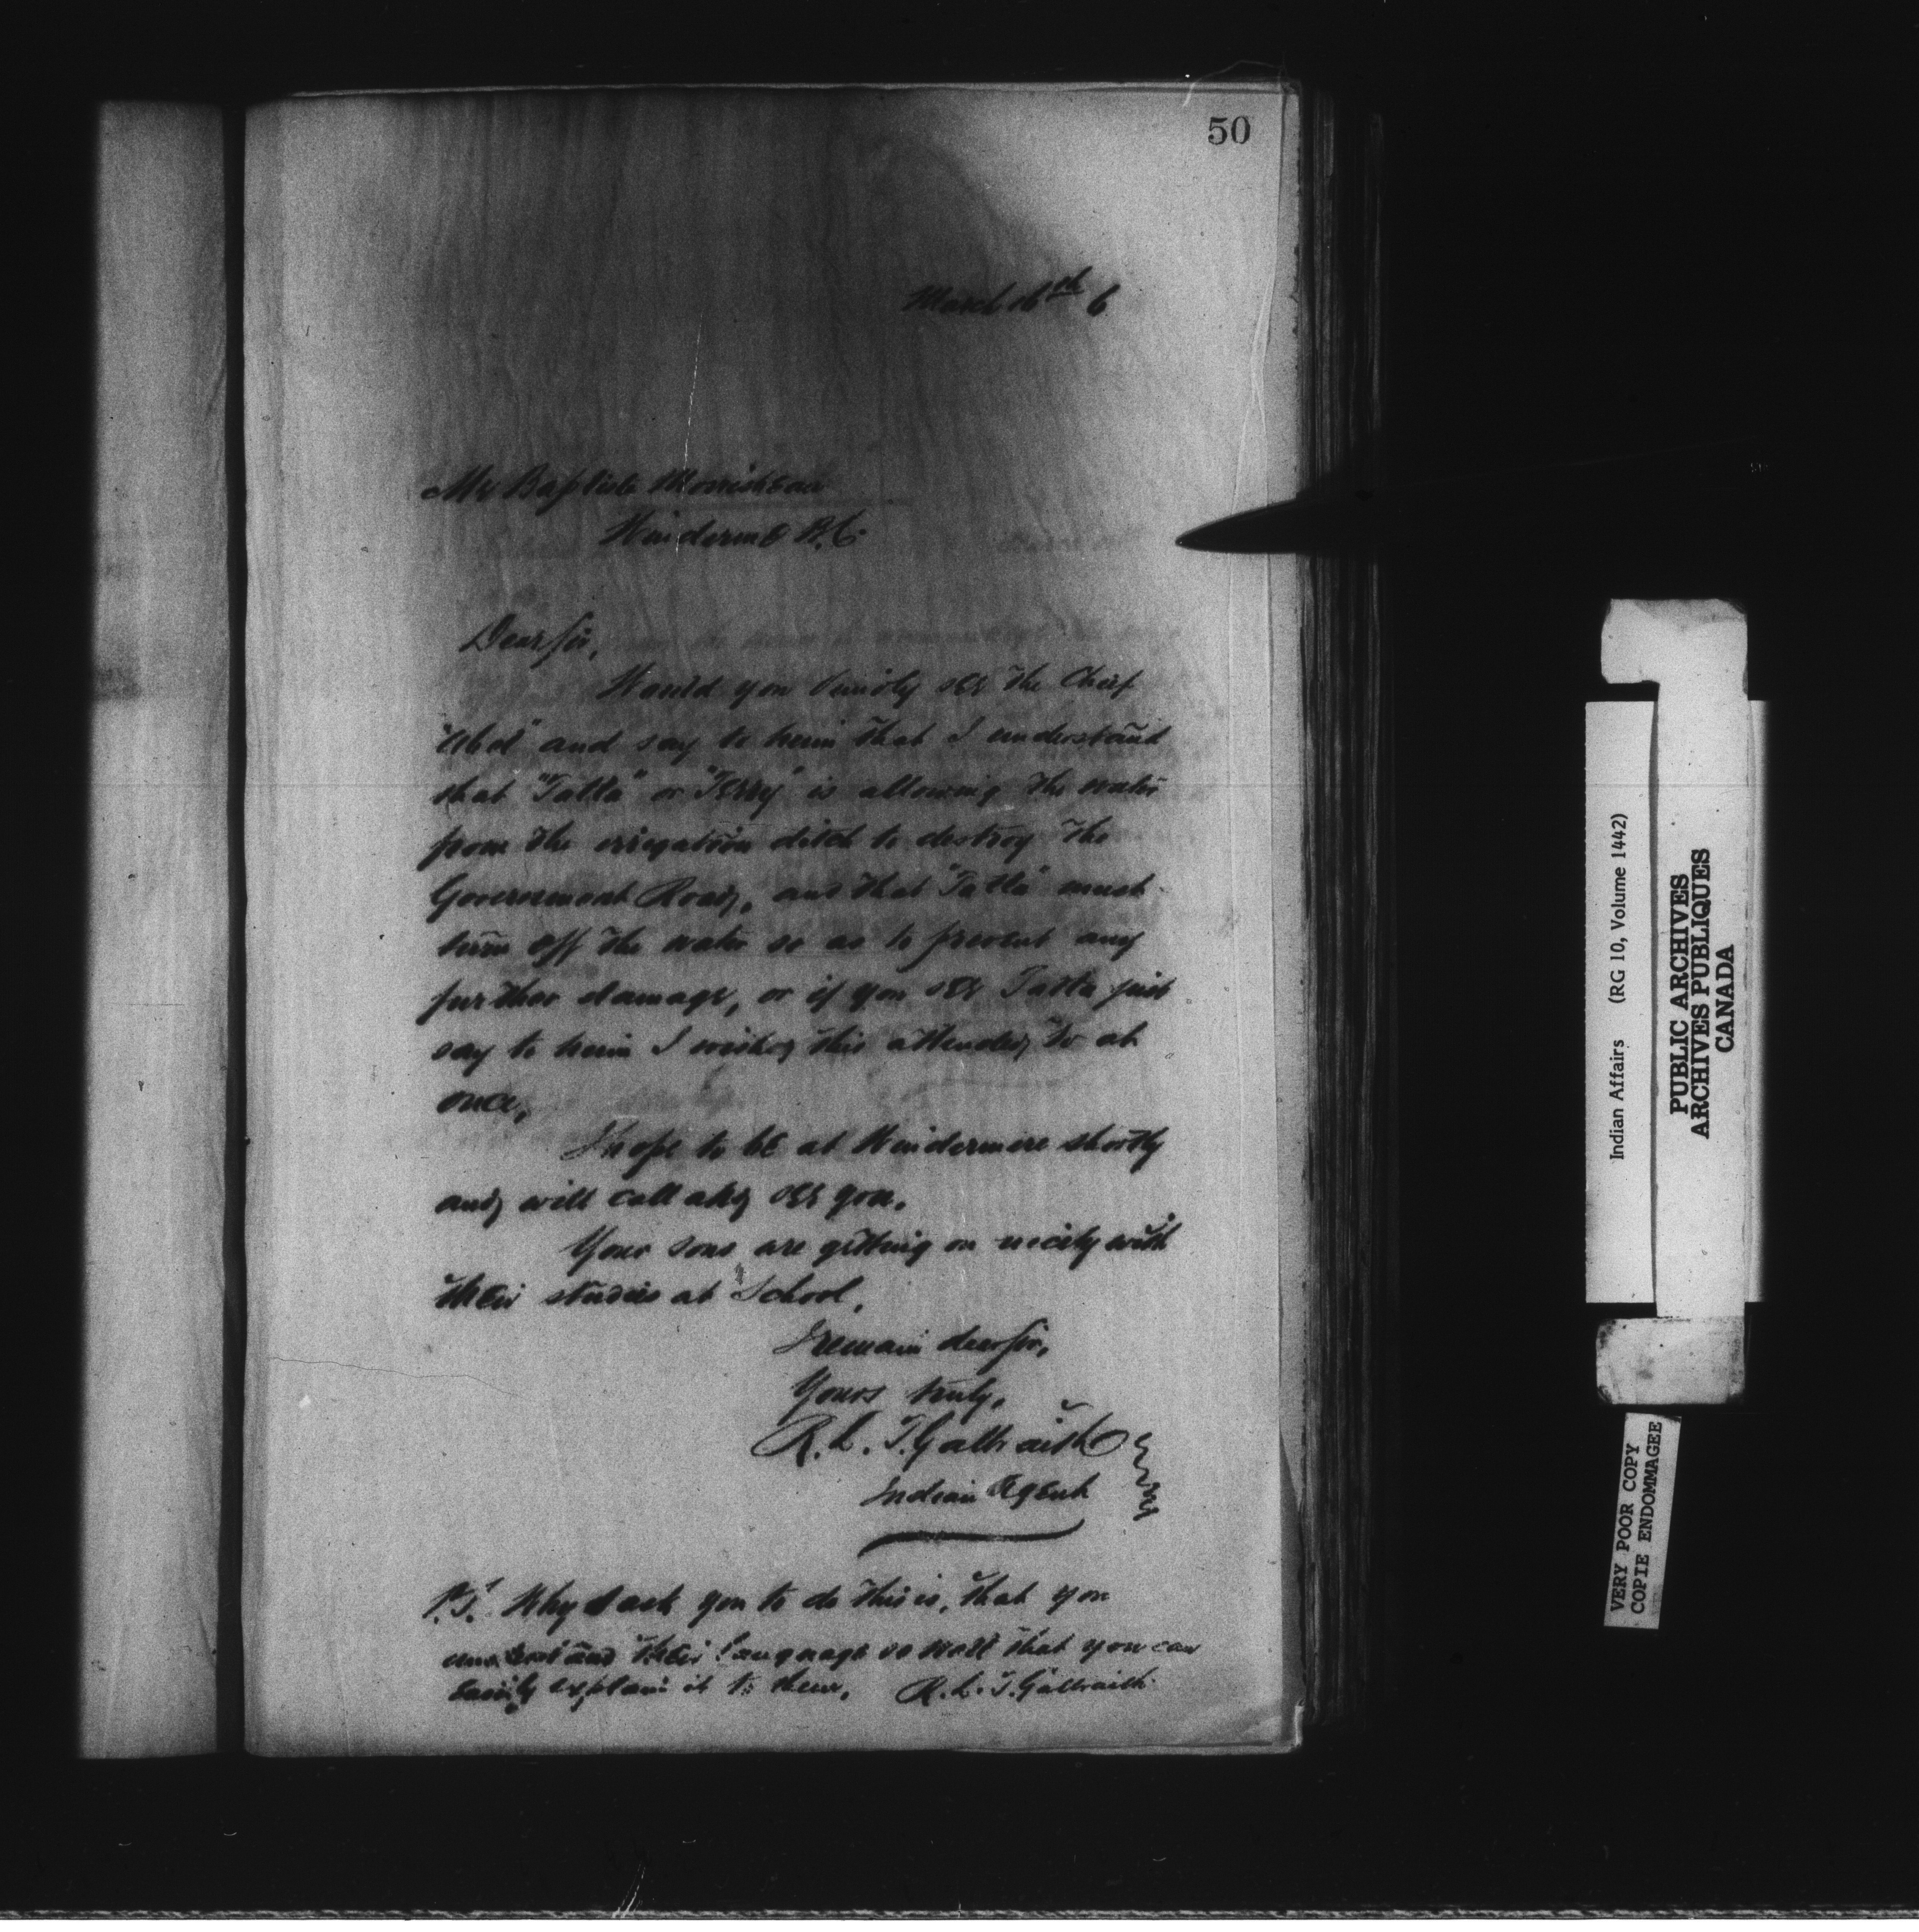 50
March 16th 6
Mr Baptiste Morrisseau
Winderm B.C.
Dear Sir,
Would you kindly see the Chief
"Abel" and say to him that I understand
that "Tatta" or "Terry" is allowing the water
from the irrigation ditch to destroy the
Government Road, and that "Tatta" must
turn off the water so as to prevent any
further damage, or if you see Tatta just
say to him I wished this attended to at
once.
I hope to be at Windermere shortly
and will call and see you.
Your sons are getting on nicely with
their studies at School.
I remain dear Sir,
Yours truly,
R. L. T. Galbraith
Indian Agent
P.S. Why I ask you to do this is, that you
understand their language so well that you can
easily explain it to them. R. L. T. Galbraith
Indian Affairs (RG 10, Volume 1442)
PUBLIC ARCHIVES
ARCHIVES PUBLIQUES
CANADA
VERY POOR COPY
COPIE ENDOMMAGEE